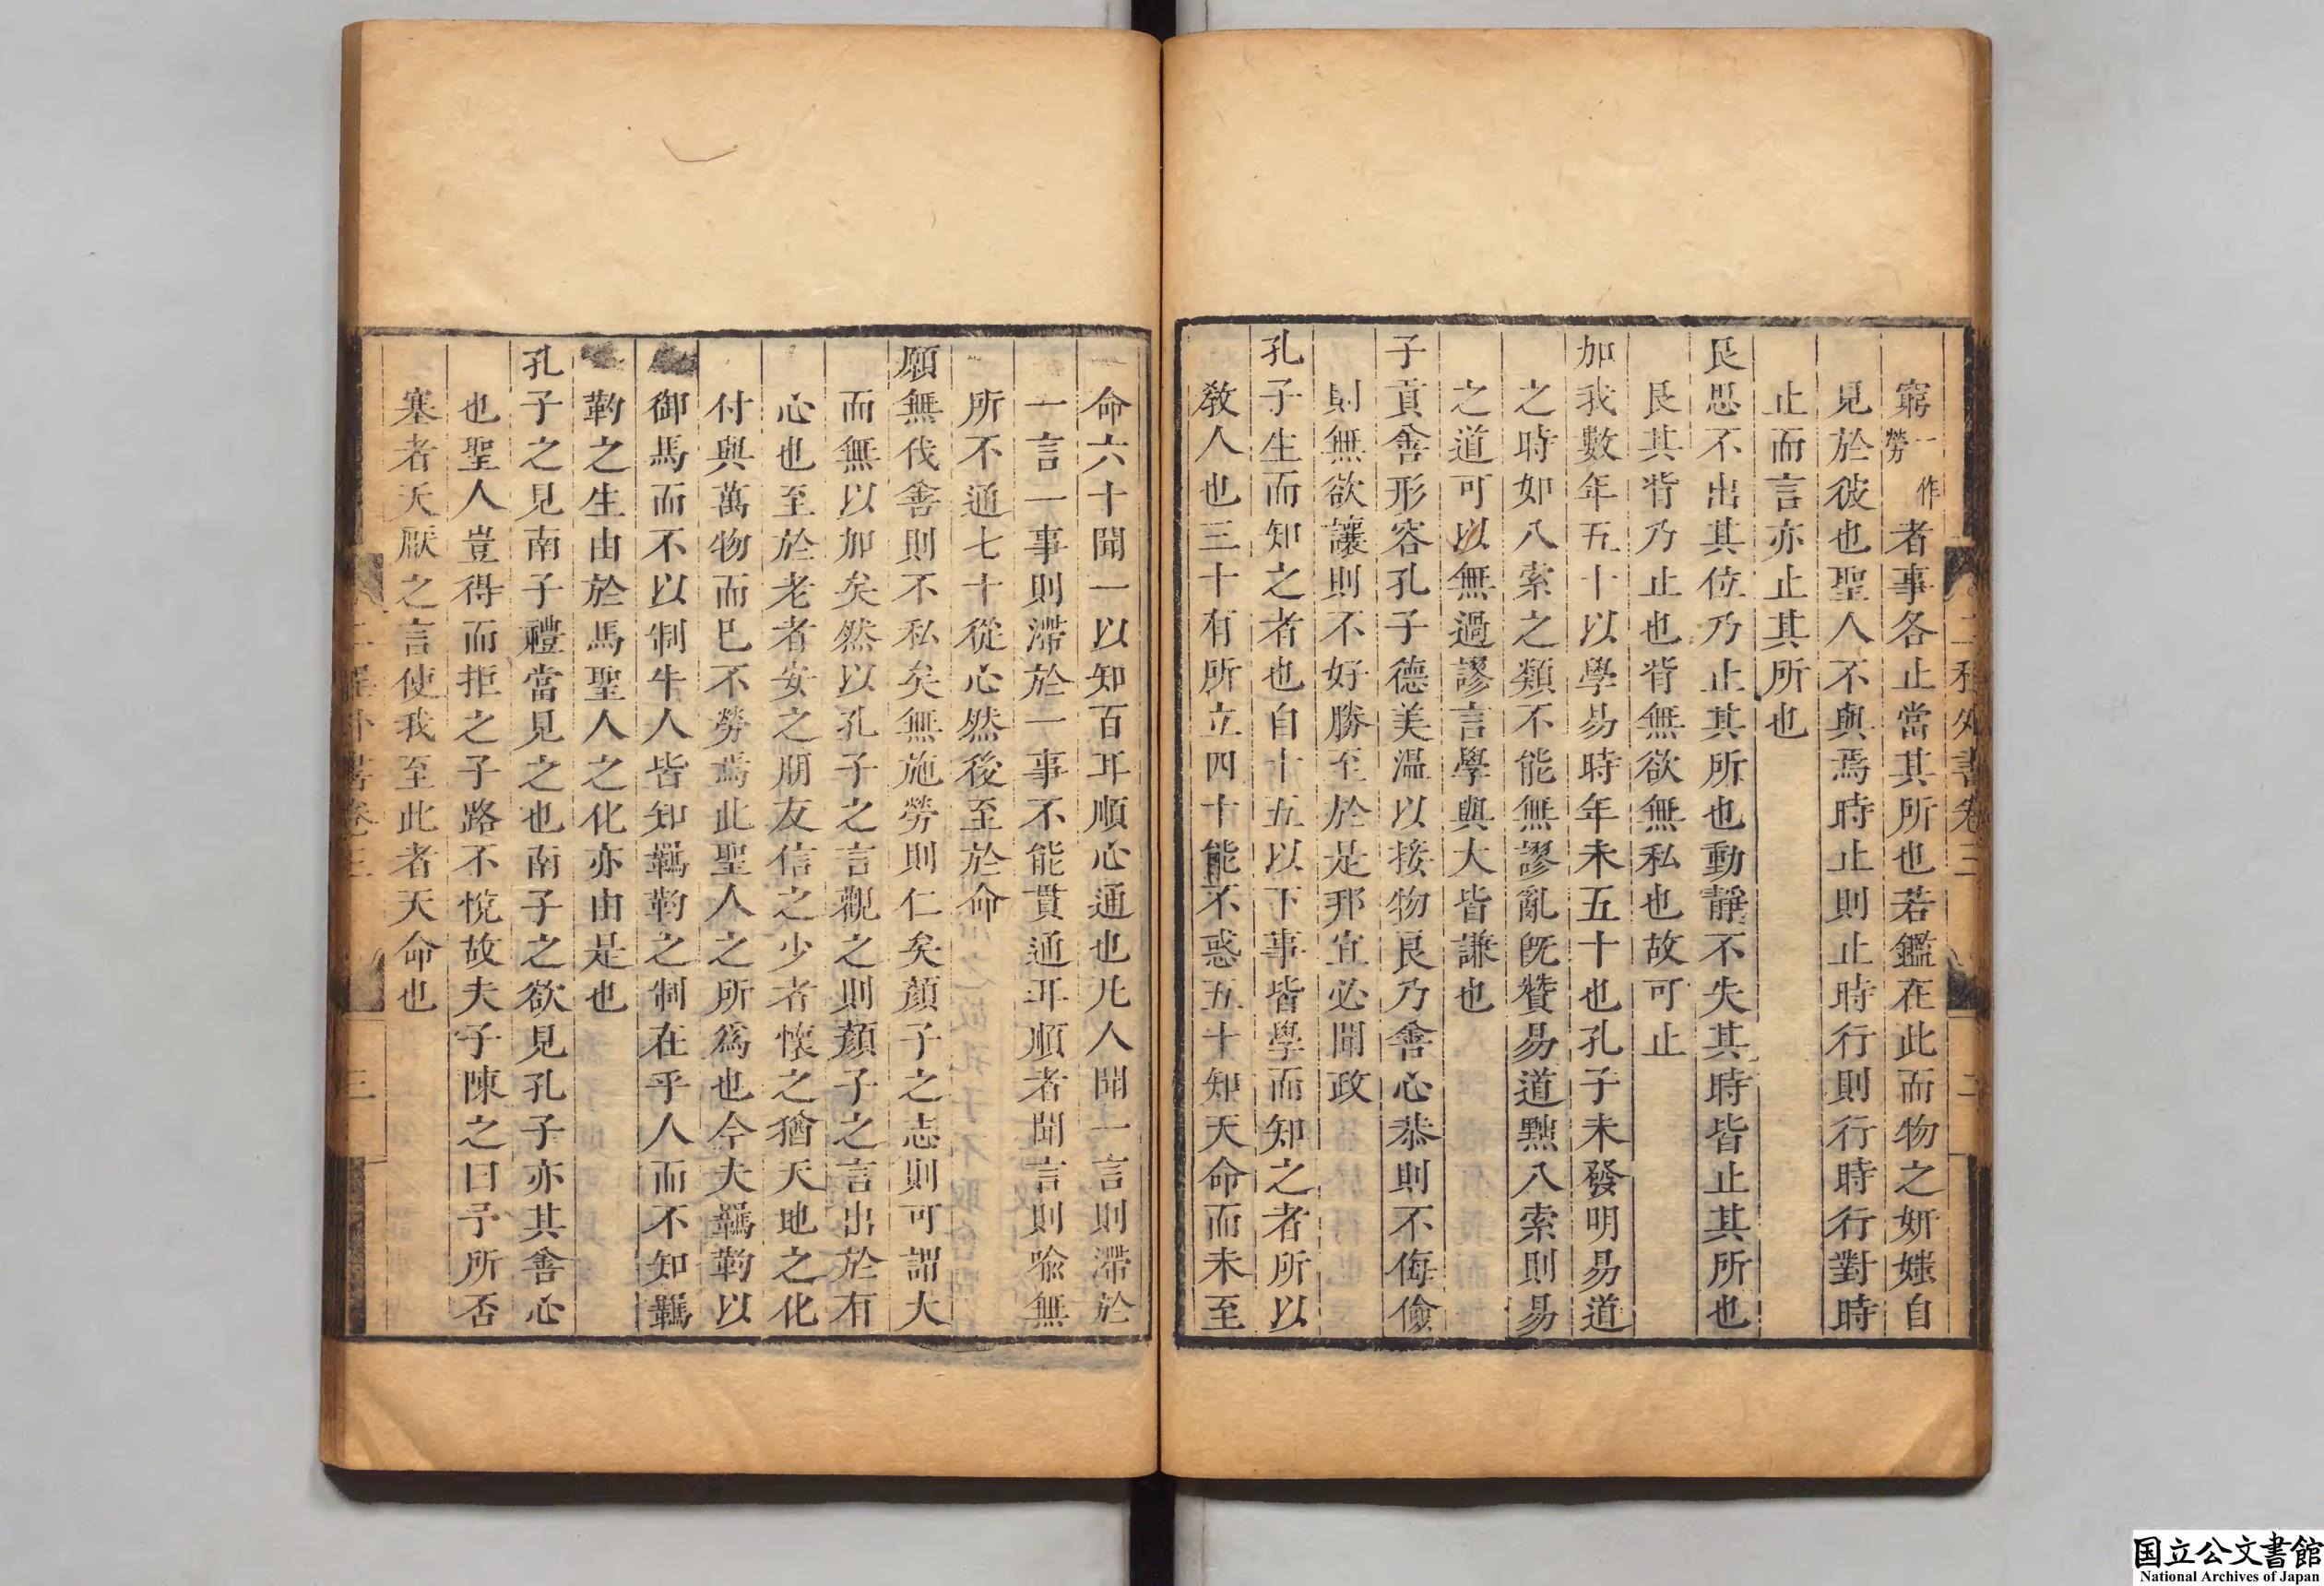 二程外書卷三
二
窮一作勞者事各止當其所也若鑑在此而物之妍媸自
見於彼也聖人不與焉時止則止時行則行時行對時
止而言亦止其所也
艮思不出其位乃止其所也動靜不失其時皆止其所也
艮其背乃止也背無欲無私也故可止
加我數年五十以學易時年未五十也孔子未發明易道
之時如八索之類不能無謬亂旣贊易道黜八索則易
之道可以無過謬言學與大皆謙也
子貢善形容孔子德美温以接物良乃善心恭則不侮儉
則無欲讓則不好勝至於是邦宜必聞政
孔子生而知之者也自十五以下事皆學而知之者所以
敎人也三十有所立四十能不惑五十知天命而未至
命六十聞一以知百耳順心通也凡人聞一言則滯於
一言一事則滯於一事不能貫通耳順者聞言則喻無
所不通七十從心然後至於命
願無伐善則不私矣無施勞則仁矣顏子之志則可謂大
而無以加矣然以孔子之言觀之則顏子之言出於有
心也至於老者安之朋友信之少者懷之猶天地之化
付與萬物而已不勞焉此聖人之所爲也今夫羈靮以
御馬而不以制牛人皆知羈靮之制在乎人而不知羈
靮之生由於馬聖人之化亦由是也
孔子之見南子禮當見之也南子之欲見孔子亦其善心
也聖人豈得而拒之子路不悅故夫子陳之曰予所否
塞者天厭之言使我至此者天命也
二程外書卷三
三
国立公文書館
National Archives of Japan